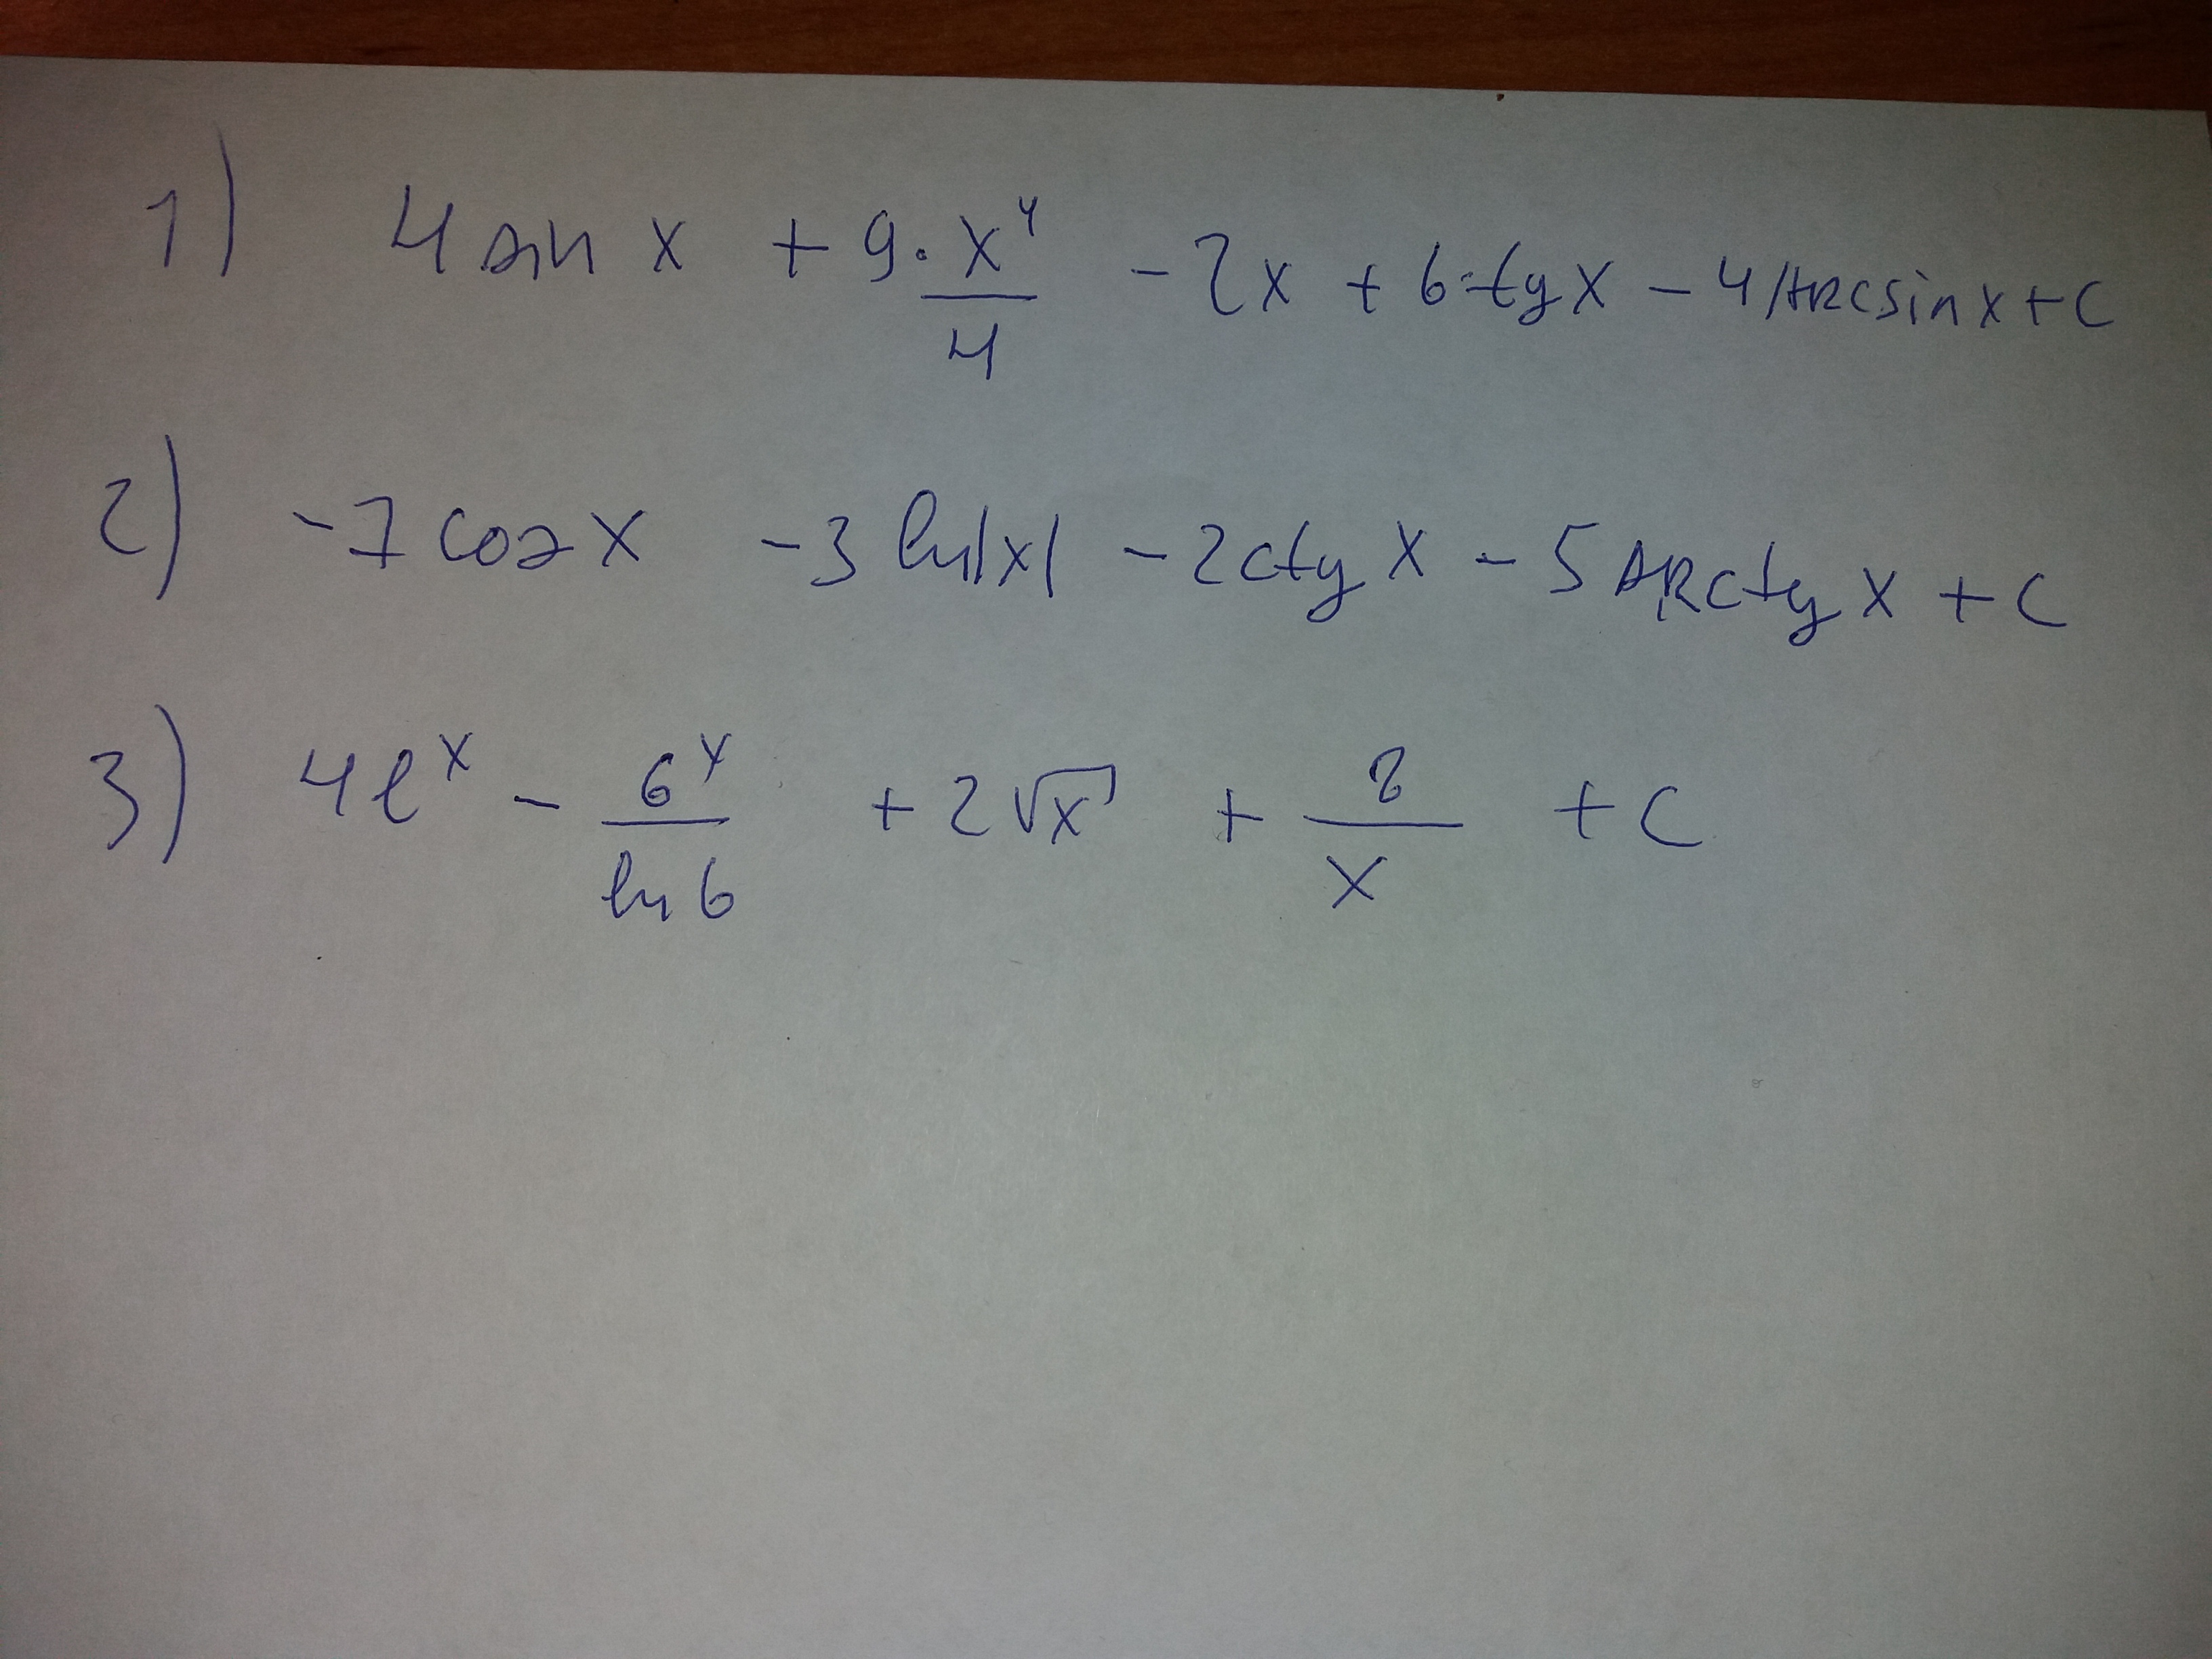 1) 4 sin x + 9 · x⁴/4 - 2x + 6 · tg x - 4 Arcsin x + C
2) - 7 cos x - 3 ln|x| - 2 ctg x - 5 Arctg x + C
3) 4e^x - 6^x/ln 6 + 2√x + 8/x + C